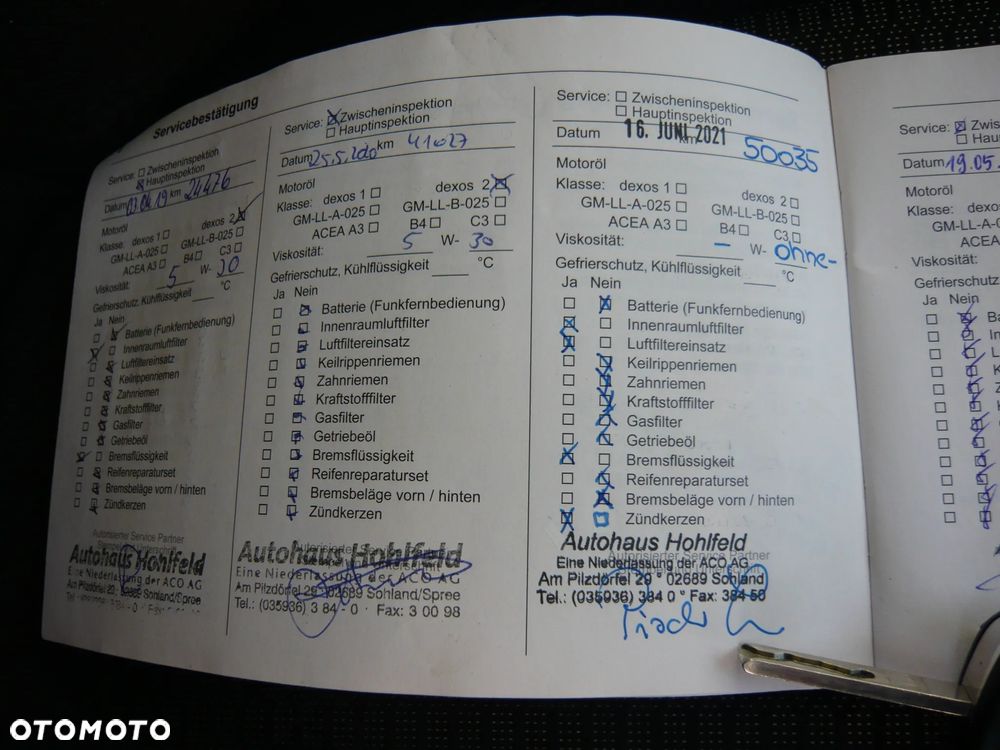 Servicebestätigung
Service: Zwischeninspektion
Hauptinspektion
Datum 03.04.19 km 24476
Motoröl
Klasse: dexos 1 dexos 2
GM-LL-A-025 GM-LL-B-025
ACEA A3 B4 C3
Viskosität: 5 W- 30
Gefrierschutz, Kühlflüssigkeit °C
Ja Nein
Batterie (Funkfernbedienung)
Innenraumluftfilter
Luftfiltereinsatz
Keilrippenriemen
Zahnriemen
Kraftstofffilter
Gasfilter
Getriebeöl
Bremsflüssigkeit
Reifenreparaturset
Bremsbeläge vorn / hinten
Zündkerzen
Autorisierter Service Partner
Autohaus Hohlfeld
Eine Niederlassung der ACO AG
Am Pilzdörfel 29 02689 Sohland/Spree
Service: Zwischeninspektion
Hauptinspektion
Datum 25.5.2020 km 41027
Motoröl
Klasse: dexos 1 dexos 2
GM-LL-A-025 GM-LL-B-025
ACEA A3 B4 C3
Viskosität: 5 W- 30
Gefrierschutz, Kühlflüssigkeit °C
Ja Nein
Batterie (Funkfernbedienung)
Innenraumluftfilter
Luftfiltereinsatz
Keilrippenriemen
Zahnriemen
Kraftstofffilter
Gasfilter
Getriebeöl
Bremsflüssigkeit
Reifenreparaturset
Bremsbeläge vorn / hinten
Zündkerzen
Autohaus Hohlfeld
Eine Niederlassung der ACO AG
Am Pilzdörfel 29 02689 Sohland/Spree
Tel.: (035936) 3 84 - 0 · Fax: 3 00 98
Service: Zwischeninspektion
Hauptinspektion
Datum 16. JUNI 2021 km 50035
Motoröl
Klasse: dexos 1 dexos 2
GM-LL-A-025 GM-LL-B-025
ACEA A3 B4 C3
Viskosität: - W- ohne-
Gefrierschutz, Kühlflüssigkeit °C
Ja Nein
Batterie (Funkfernbedienung)
Innenraumluftfilter
Luftfiltereinsatz
Keilrippenriemen
Zahnriemen
Kraftstofffilter
Gasfilter
Getriebeöl
Bremsflüssigkeit
Reifenreparaturset
Bremsbeläge vorn / hinten
Zündkerzen
Autohaus Hohlfeld
Autorisierter Service Partner
Eine Niederlassung der ACO AG
Am Pilzdörfel 29 * 02689 Sohland
Tel.: (035936) 384 0 * Fax: 384 50
Service:
Datum 19.05.
Motoröl
Klasse: dexos
GM-LL-A
ACEA
Viskosität:
Gefrierschutz
Ja Nein
OTOMOTO